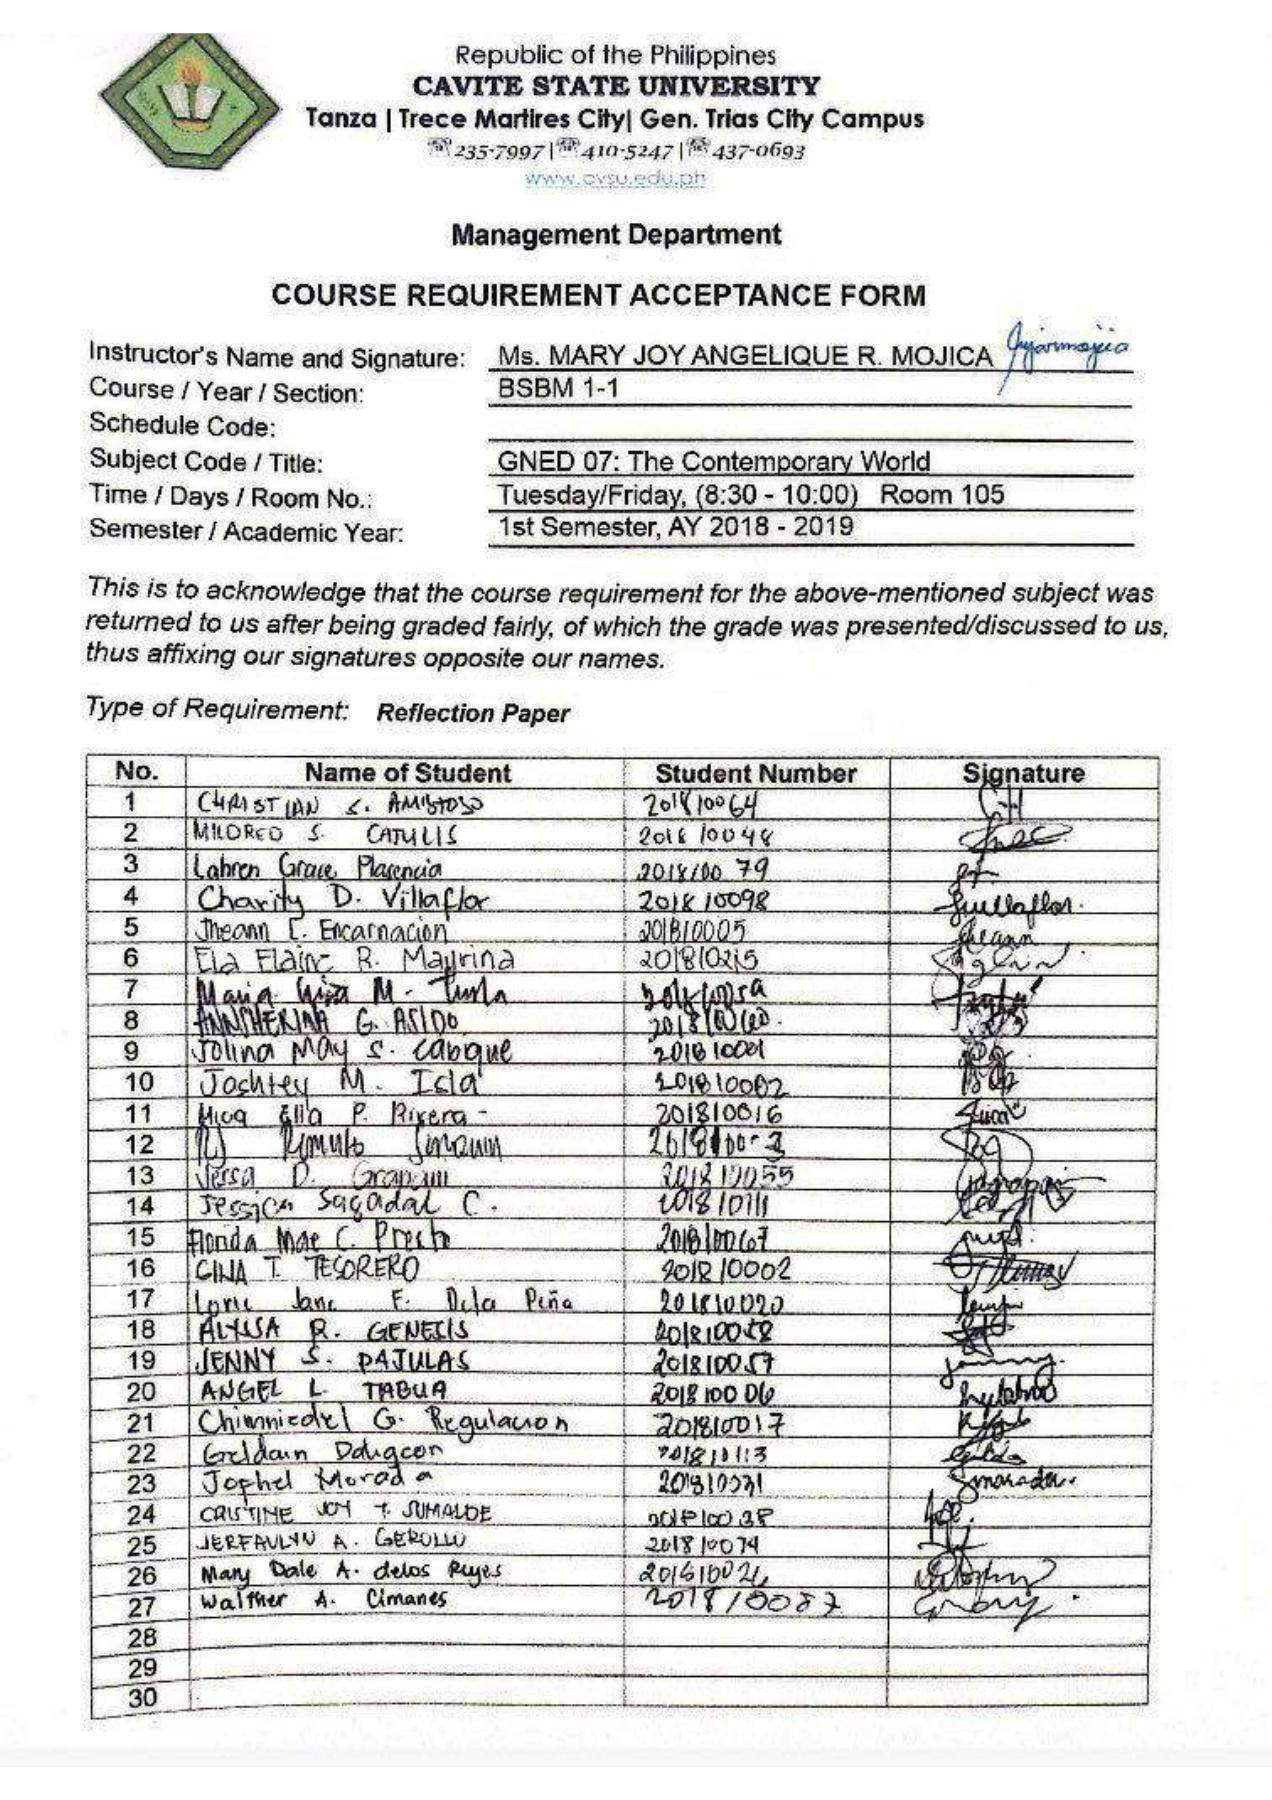 Republic of the Philippines
CAVITE STATE UNIVERSITY
Tanza | Trece Martires City| Gen. Trias City Campus
☏ 235-7997 | ☏ 410-5247 | ☏ 437-0693
www.cvsu.edu.ph
Management Department
COURSE REQUIREMENT ACCEPTANCE FORM
Instructor's Name and Signature: Ms. MARY JOY ANGELIQUE R. MOJICA
Course / Year / Section: BSBM 1-1
Schedule Code:
Subject Code / Title: GNED 07: The Contemporary World
Time / Days / Room No.: Tuesday/Friday, (8:30 - 10:00) Room 105
Semester / Academic Year: 1st Semester, AY 2018 - 2019
This is to acknowledge that the course requirement for the above-mentioned subject was
returned to us after being graded fairly, of which the grade was presented/discussed to us,
thus affixing our signatures opposite our names.
Type of Requirement: Reflection Paper
No. Name of Student Student Number Signature
1 CHRISTIAN S. AMISTOSO 201810064
2 MILDRED S. CATULIS 201810048
3 Lahren Grace Plasencia 201810079
4 Charity D. Villaflor 201810098
5 Jheann C. Encarnacion 201810005 jheann
6 Ela Elaine R. Maurina 201810215
7 Maria M.
8 ANNSHERINA G. ASIDO
9 Jolina May S. Cabque 201810001
10 Joshtey M. Isla 201810002
11 Mica Ella P. Rivera 201810016
12 RJ Romulo
13 Jessa D. 201810055
14 Jessica Sagadal C. 201810111
15 Florida Mae C. Presto 201810067
16 GINA T. TESORERO 201810002
17 Loric Jane F. Dela Peña 201810020
18 ALYSSA R. GENESIS 201810058
19 JENNY S. PAJULAS 201810057
20 ANGEL L. TABUA 201810006
21 Chinniedel G. Regulacion 201810017
22 Geldain Daligcon 201810113
23 Jophel Morada 201810031
24 CRISTINE JOY T. SUMALDE 201810038
25 A. 201810074
26 Mary Dale A. delos Reyes 201810026
27 Walther A. Cimanes 201810087
28
29
30